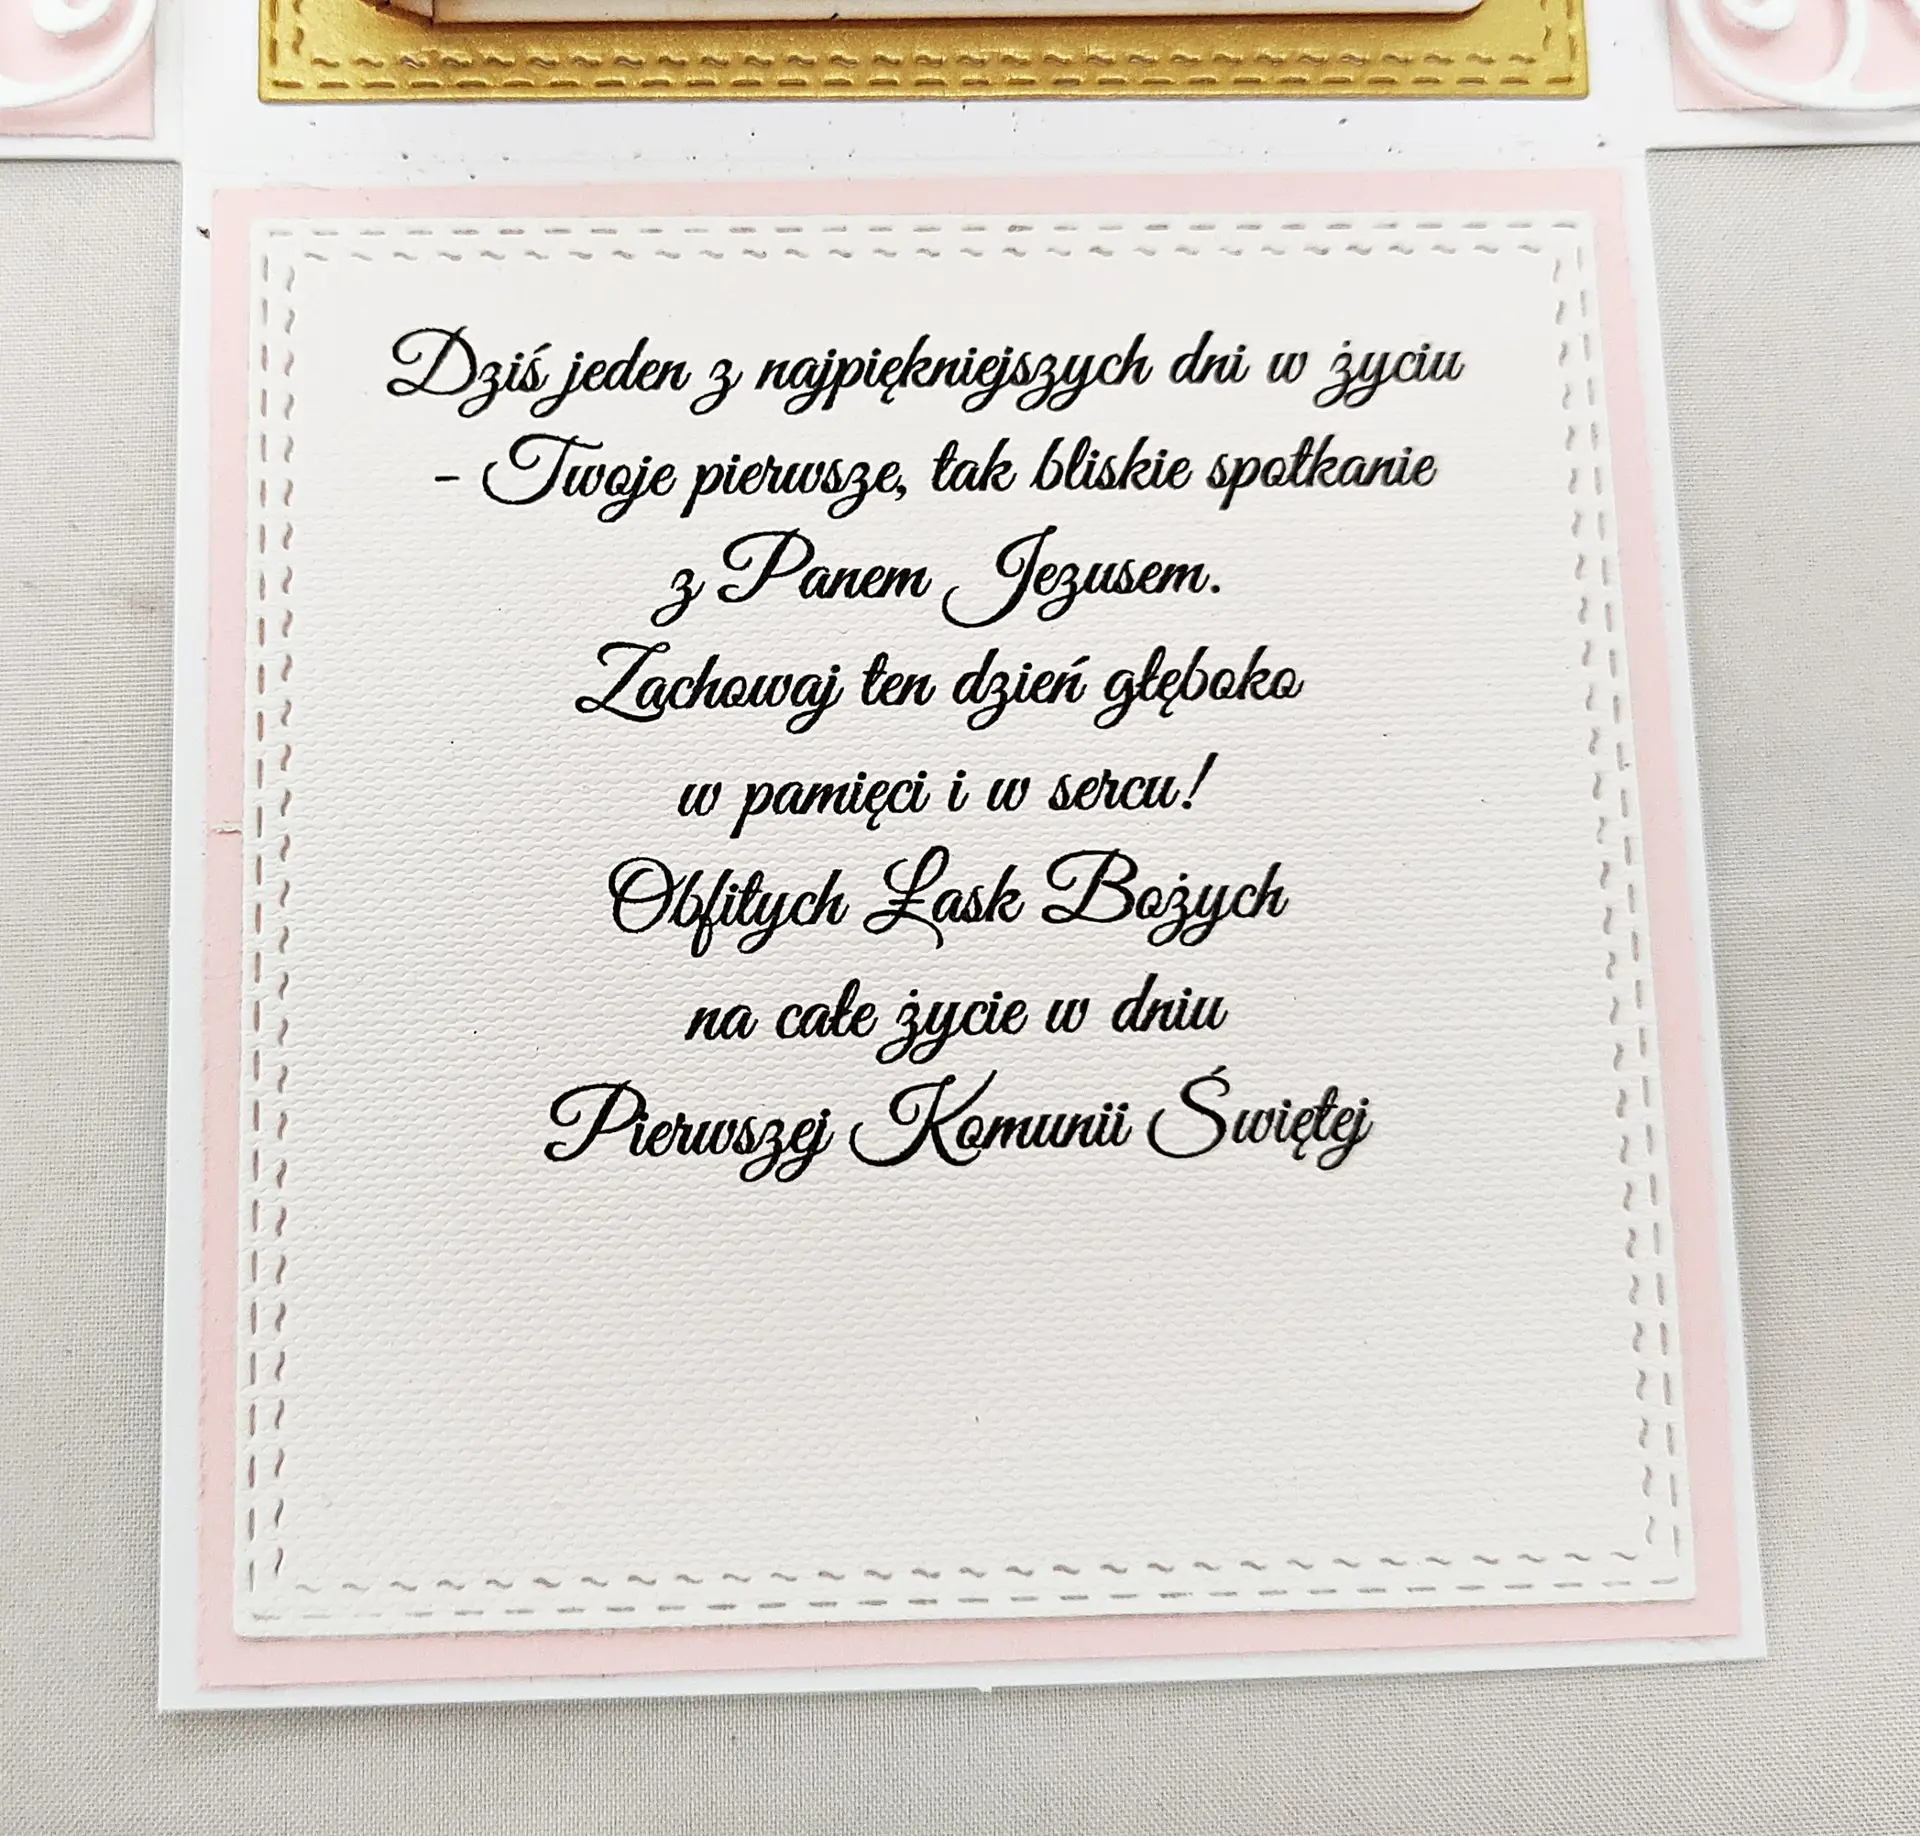 Dziś jeden z najpiękniejszych dni w życiu
- Twoje pierwsze, tak bliskie spotkanie
z Panem Jezusem.
Zachowaj ten dzień głęboko
w pamięci i w sercu!
Obfitych Łask Bożych
na całe życie w dniu
Pierwszej Komunii Świętej